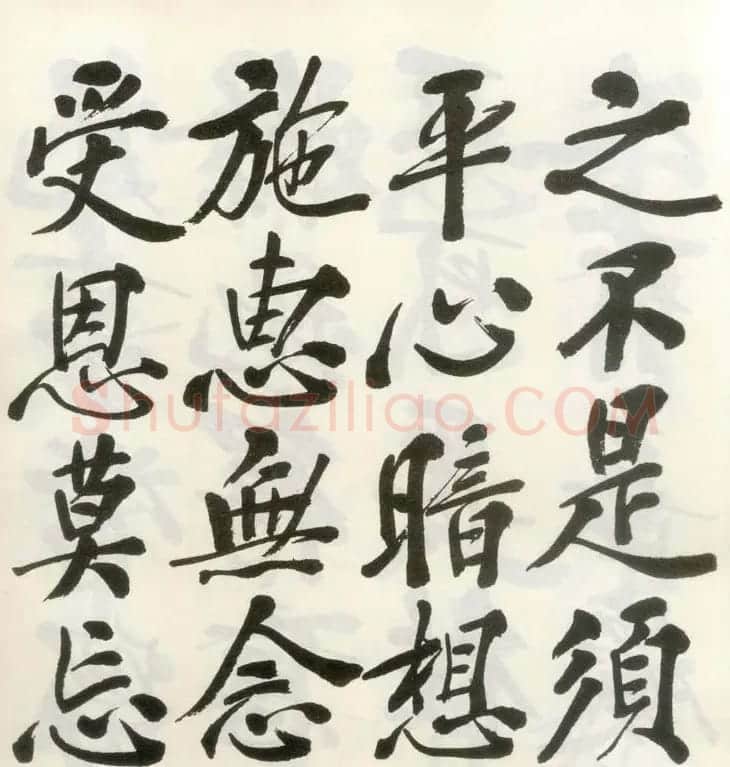 之不是須
平心暗想
施惠無念
受恩莫忘
Shufaziliao.COM